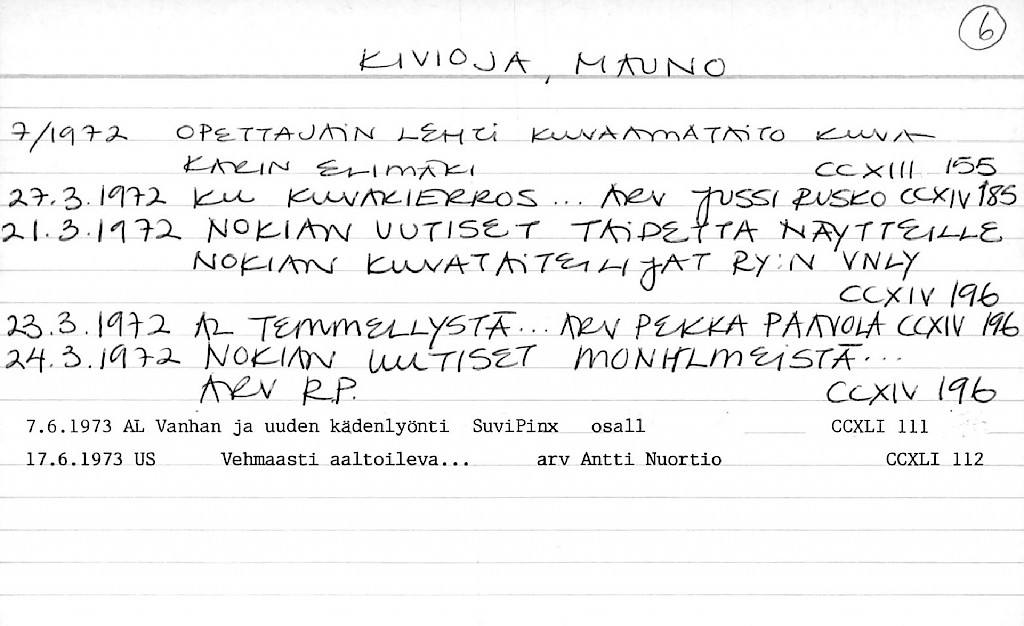 6
KIVIOJA, MAUNO
7/1972 OPETTAJAIN LEHTI KUVAAMATAITO KUVA
KARIN ELIMÄKI CCXIII 155
27.3.1972 KU KUVAKIERROS... ARV JUSSI RUSKO CCXIV 185
21.3.1972 NOKIAN UUTISET TAIDETTA NÄYTTEILLE
NOKIAN KUVATAITEILIJAT RY:N VNLY
CCXIV 196
23.3.1972 AL TEMMELLYSTÄ... ARV PEKKA PAAVOLA CCXIV 196
24.3.1972 NOKIAN UUTISET MONILMEISTÄ...
ARV R.P. CCXIV 196
7.6.1973 AL Vanhan ja uuden kädenlyönti SuviPinx osall CCXLI 111
17.6.1973 US Vehmaasti aaltoileva... arv Antti Nuortio CCXLI 112